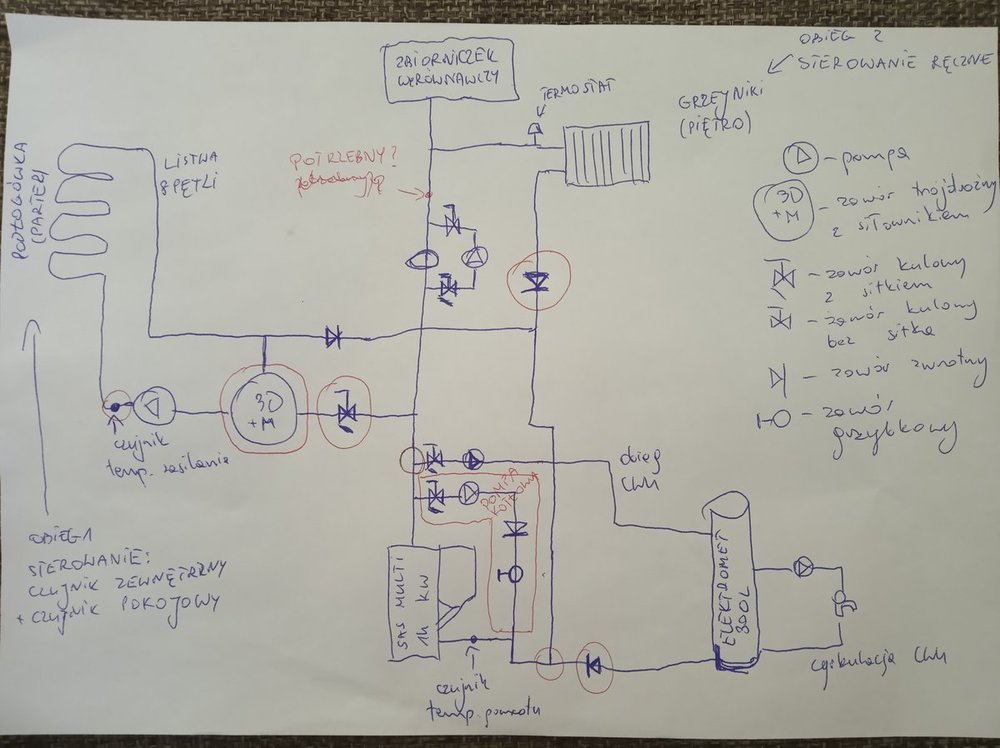 ZBIORNICZEK
WYRÓWNAWCZY
OBIEG 2
STEROWANIE RĘCZNE
TERMOSTAT
GRZEJNIKI
(PIĘTRO)
PODŁOGÓWKA
(PARTER)
LISTWA
8 PĘTLI
POTRZEBNY?
- pompa
3D
+M
- zawór trójdrożny
z siłownikiem
- zawór kulowy
z sitkiem
- zawór kulowy
bez sitka
- zawór zwrotny
- zawór
grzybkowy
3D
+M
czujnik
temp. zasilania
obieg
CWU
POMPA
KOTŁOWA
OBIEG 1
STEROWANIE:
CZUJNIK ZEWNĘTRZNY
+ CZUJNIK POKOJOWY
SAS MULTI
14 KW
ELEKTROMET
300L
czujnik
temp. powrotu
cyrkulacja CWU